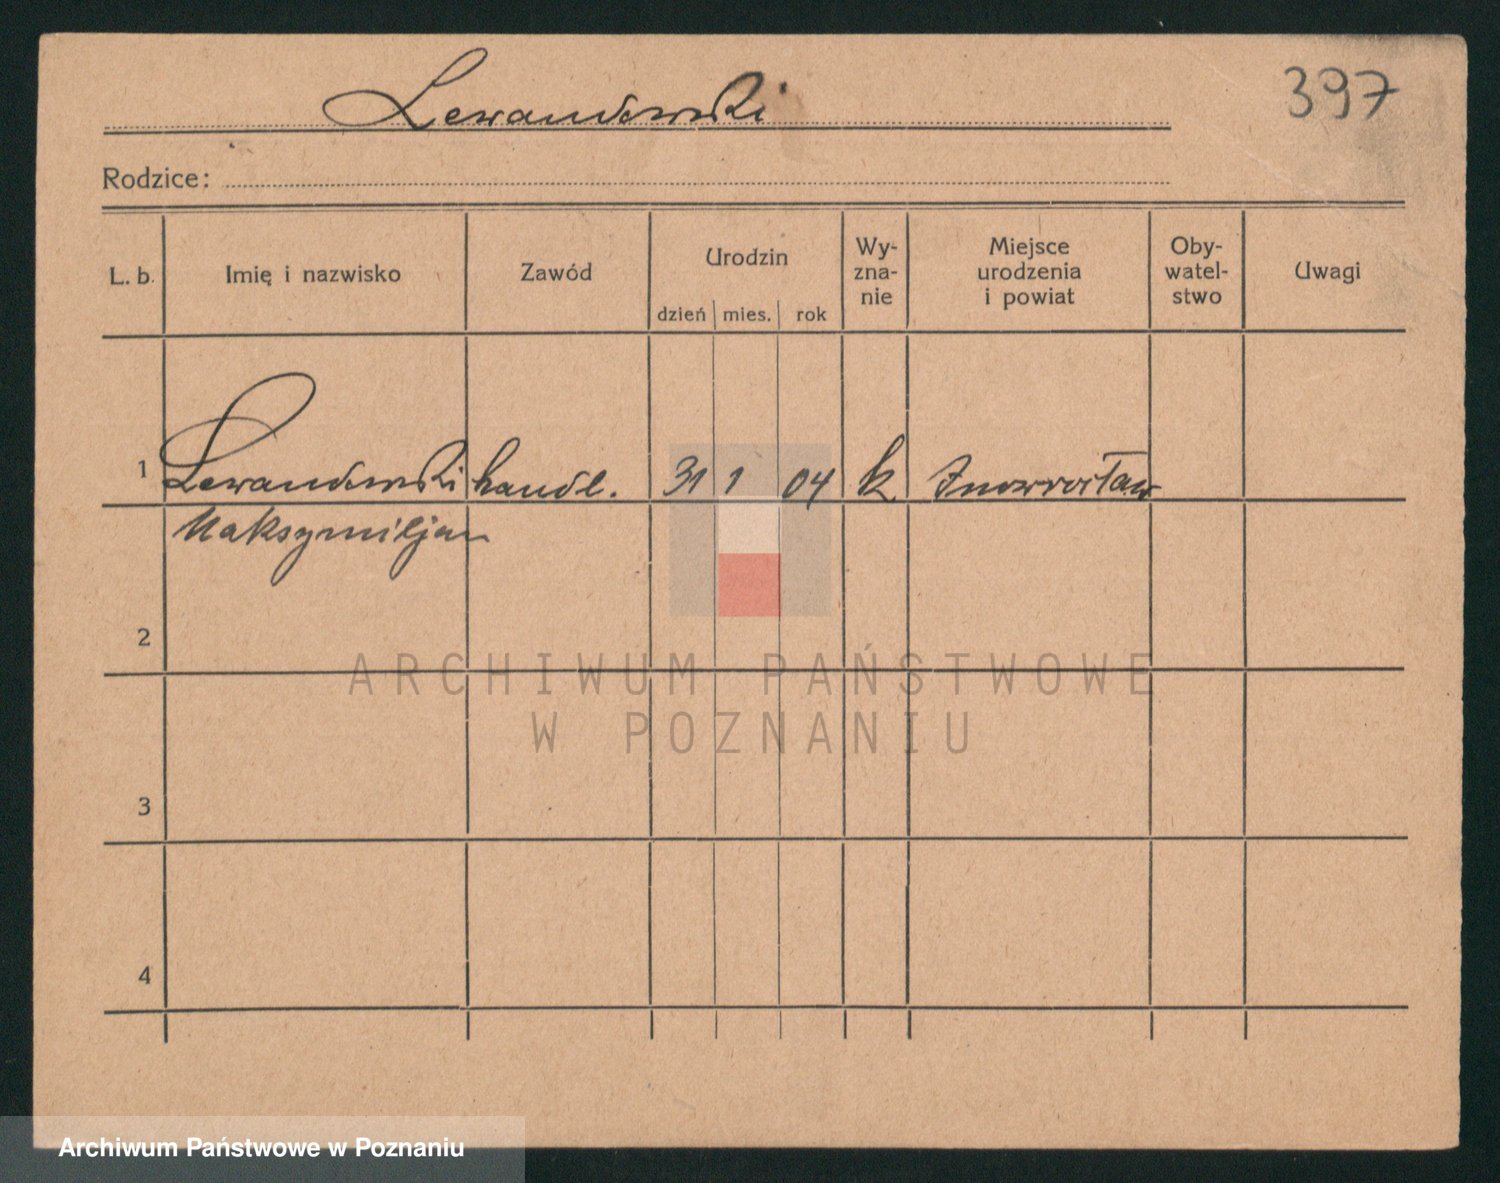 Lewandowski
397
Rodzice:
L. b. Imię i nazwisko Zawód Urodzin dzień mies. rok Wy-zna-nie Miejsce urodzenia i powiat Oby-watel-stwo Uwagi
1 Lewandowski handl. 31 1 04 k. Inowrocław
Maksymiljan
2
ARCHIWUM PAŃSTWOWE
W POZNANIU
3
4
Archiwum Państwowe w Poznaniu